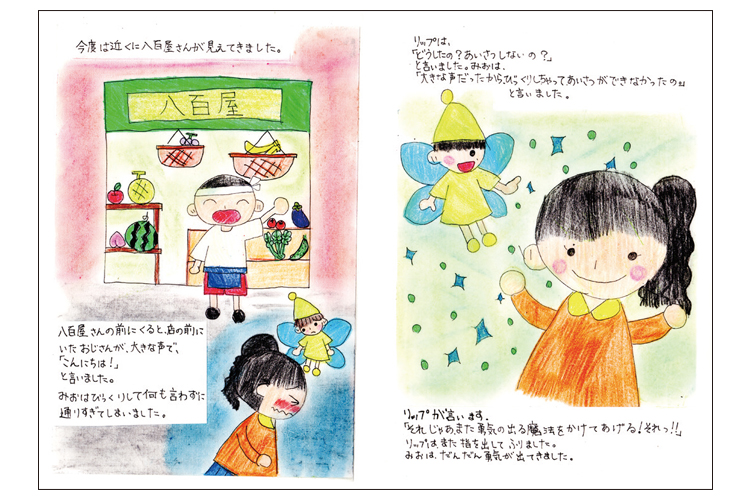 今度は近くに八百屋さんが見えてきました。
八百屋
八百屋さんの前にくると、店の前に
いたおじさんが、大きな声で、
「こんにちは!」
と言いました。
みおはびっくりして何も言わずに
通りすぎてしまいました。
リップは、
「どうしたの?あいさつしないの?」
と言いました。みおは、
「大きな声だったから、びっくりしちゃってあいさつができなかったの。」
と言いました。
リップが言います。
「それじゃあ、また勇気の出る魔法をかけてあげる!それっ!!」
リップは、また指を出してふりました。
みおは、だんだん勇気が出てきました。